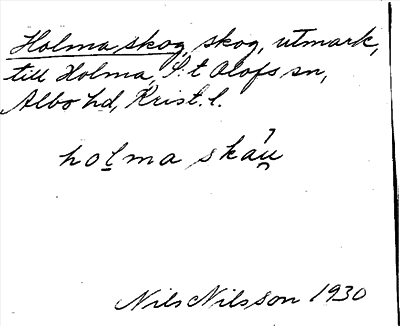 Holma skog, skog, utmark,
till Holma, S:t Olofs sn,
Albo hd, Krist. l.
holma skáu̯
Nils Nilsson 1930